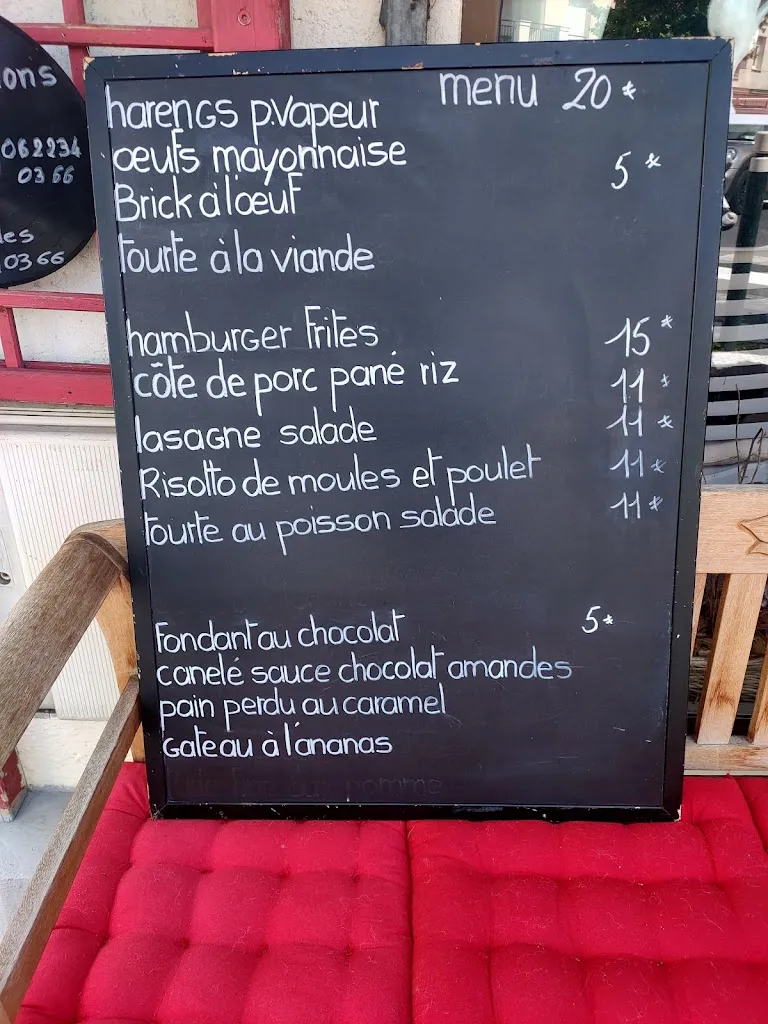 ons
062234
03 66
les
0366
menu 20*
harengs p.vapeur
œufs mayonnaise 5*
Brick à l'œuf
tourte à la viande
hamburger frites 15*
côte de porc pané riz 11*
lasagne salade 11*
Risotto de moules et poulet 11*
tourte au poisson salade 11*
fondant au chocolat 5*
canelé sauce chocolat amandes
pain perdu au caramel
gateau à l'ananas